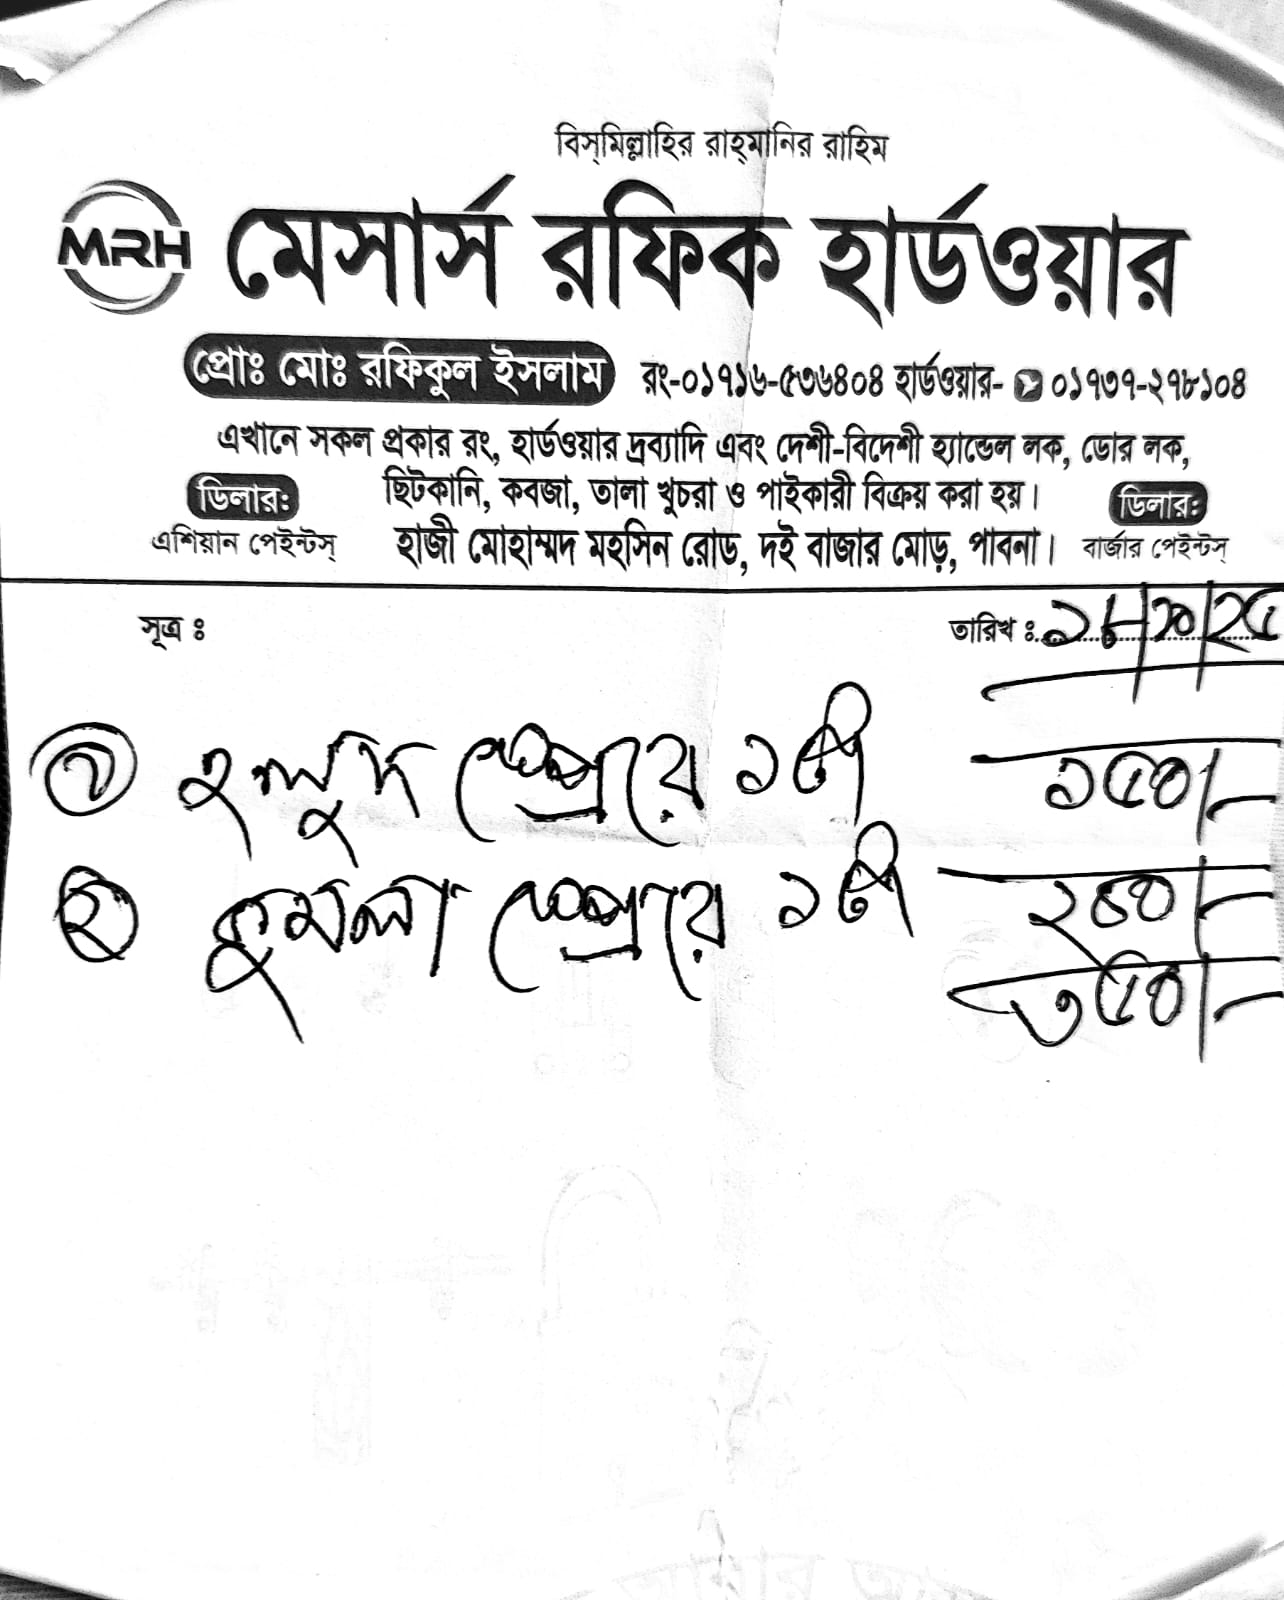 বিস্‌মিল্লাহির রাহ্‌মানির রাহিম
MRH মেসার্স রফিক হার্ডওয়ার
প্রোঃ মোঃ রফিকুল ইসলাম রং-০১৭১৬-৫৩৬৪০৪ হার্ডওয়ার- ০১৭৩৭-২৭৮১০৪
এখানে সকল প্রকার রং, হার্ডওয়ার দ্রব্যাদি এবং দেশী-বিদেশী হ্যান্ডেল লক, ডোর লক,
ডিলার: ছিটকানি, কবজা, তালা খুচরা ও পাইকারী বিক্রয় করা হয়। ডিলার:
এশিয়ান পেইন্টস্ হাজী মোহাম্মদ মহসিন রোড, দই বাজার মোড়, পাবনা। বার্জার পেইন্টস্
সূত্র ঃ তারিখ ঃ ১৮/১০/২৫
১ হলুদ স্প্রেয়ে ১টি ১৫০/-
২ কুমলা স্প্রেয়ে ১টি ২০০/-
৩৫০/-